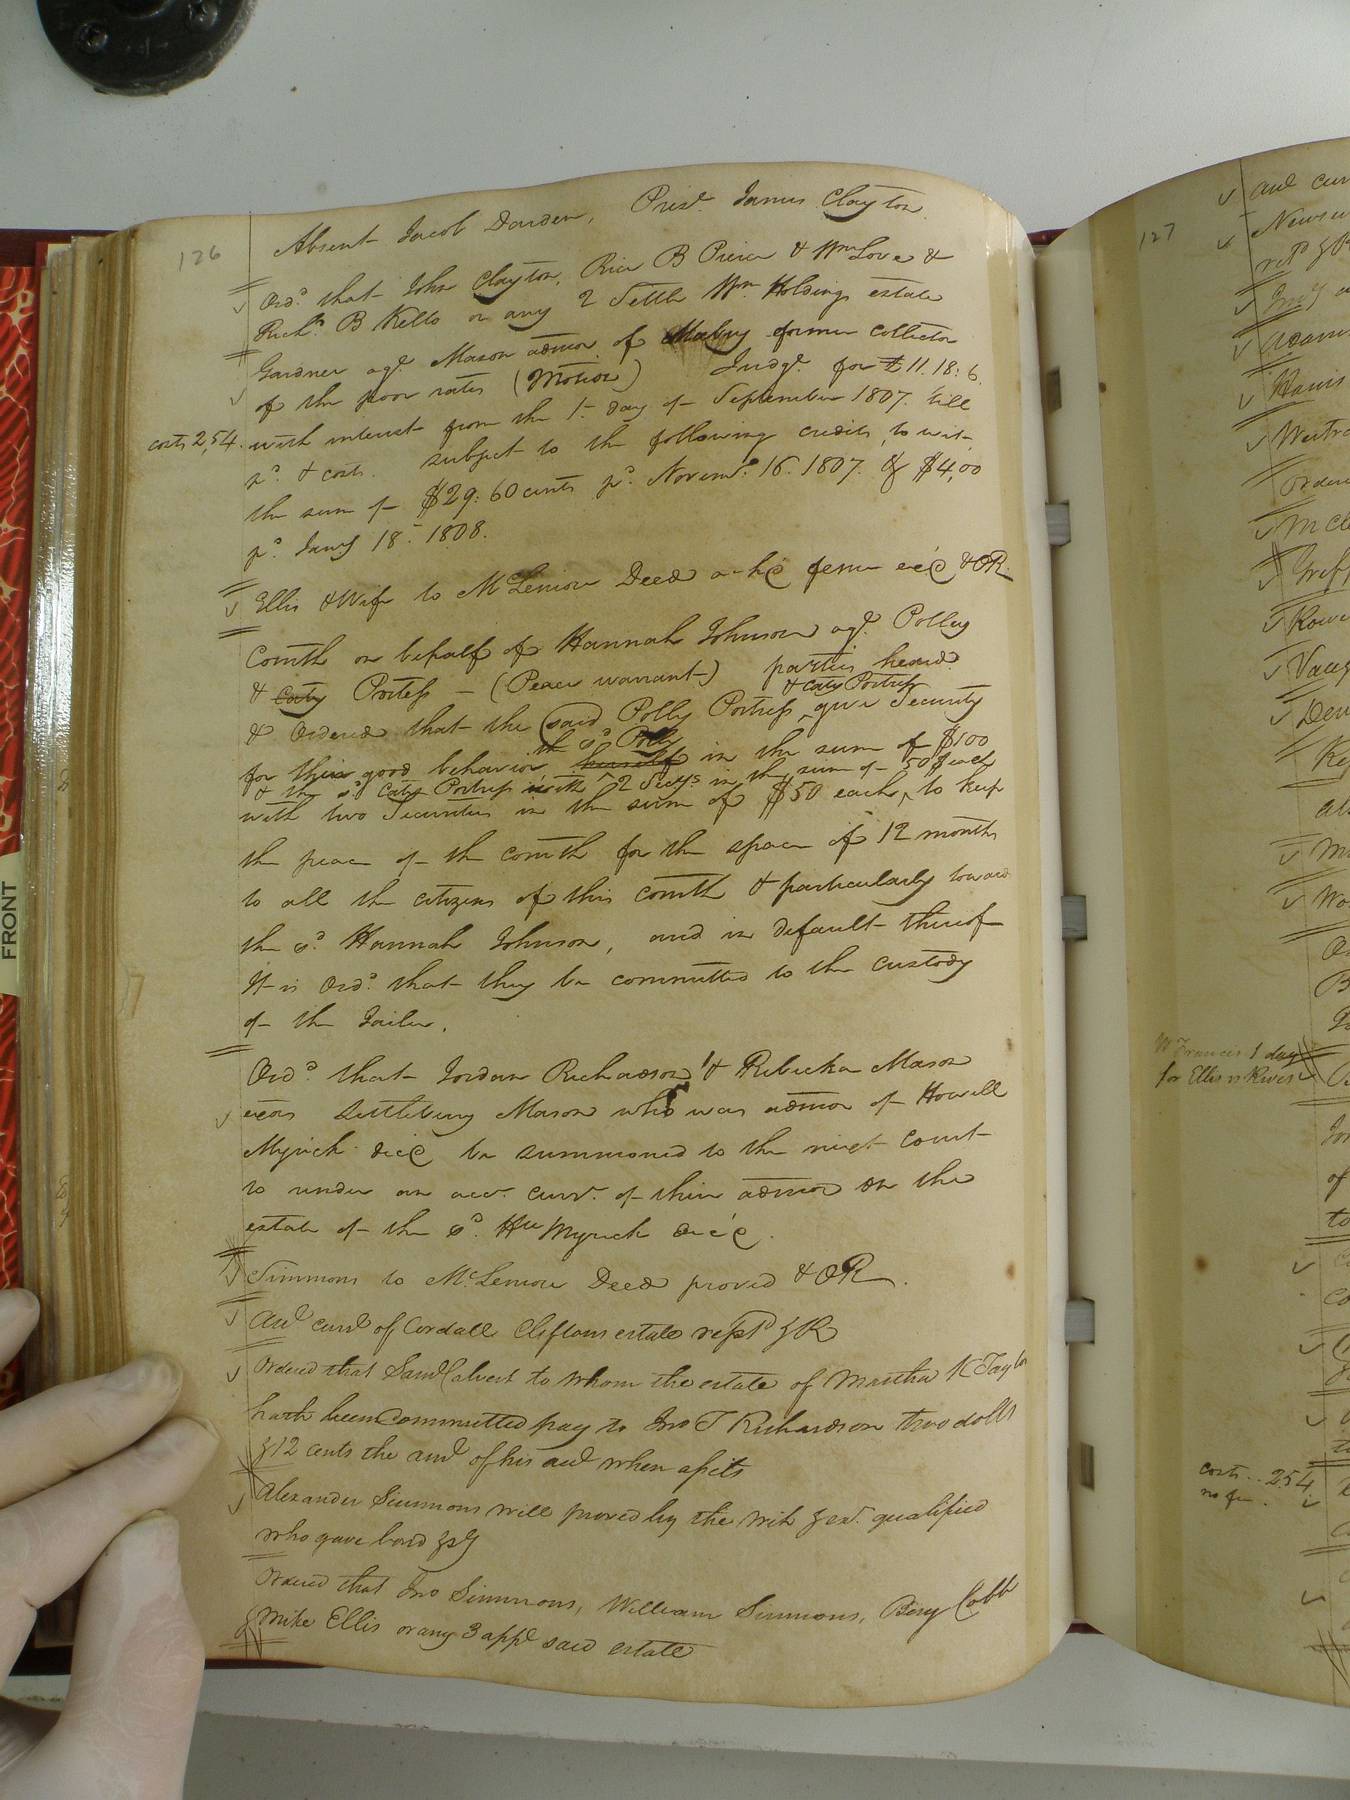 126
Absent Jacob Darden, Pres.t James Clayton
Ord.d that John Clayton, Rice B Pierce & Wm Love &
Rich.d B Kello or any 2 Settle Wm Holdings estate
Gardner ag.t Mason admor of Mabry former collector
of the poor rates (Motion) Judg.t for £11.18.6.
costs 2,54. with interest from the 1st day of September 1807. till
p.d & costs. subject to the following credits, to wit
the sum of $29:60 cents p.d Novem.r 16. 1807. & $4,00
p.d Jan.y 18th 1808.
Ellis & Wife to McLemore Deed feme & OR.
Comth on behalf of Hannah Johnson ag.t Polley
& Caty Portess - (Peace warrant) parties heard
& Caty Portress
& Ordered that the said Polly Portress give Security
the s.d Polly
for their good behavior himself in the sum of $100
& the s.d Caty Portress with 2 Secys in the sum of 50$ each
with two Securities in the sum of $50 each, to keep
the peace of the comth for the space of 12 months
to all the citizens of this comth & particularly toward
the s.d Hannah Johnson, and in default thereof
It is Ord.d that they be committed to the custody
of the Jailer.
Ord.d that Jordan Richardson & Rebecka Mason
exors Littlebury Mason who was admor of Howell
Myrick dec'd be summoned to the next Court
to render an acc.t curr.t of their admon on the
estate of the s.d Hll Myrick dec'd.
Simmons to McLemore Deed proved & OR.
Acc.t curr.t of Cordall Cliftons estate ret.d & R
Ordered that Saml Calvert to whom the estate of Martha K Taylor
hath been Committed pay to Jno T Richardson two dolls
& 12 cents the am.t of his acc.t when assets
Alexander Simmons will proved by the wits & ex.r qualified
who gave bond & Sy
Ordered that Jno Simmons, William Simmons, Benj Cobb
& Mike Ellis or any 3 app.r said estate
127
Wm Francis 1 day
for Ellis vs Rives
costs.. 2.54